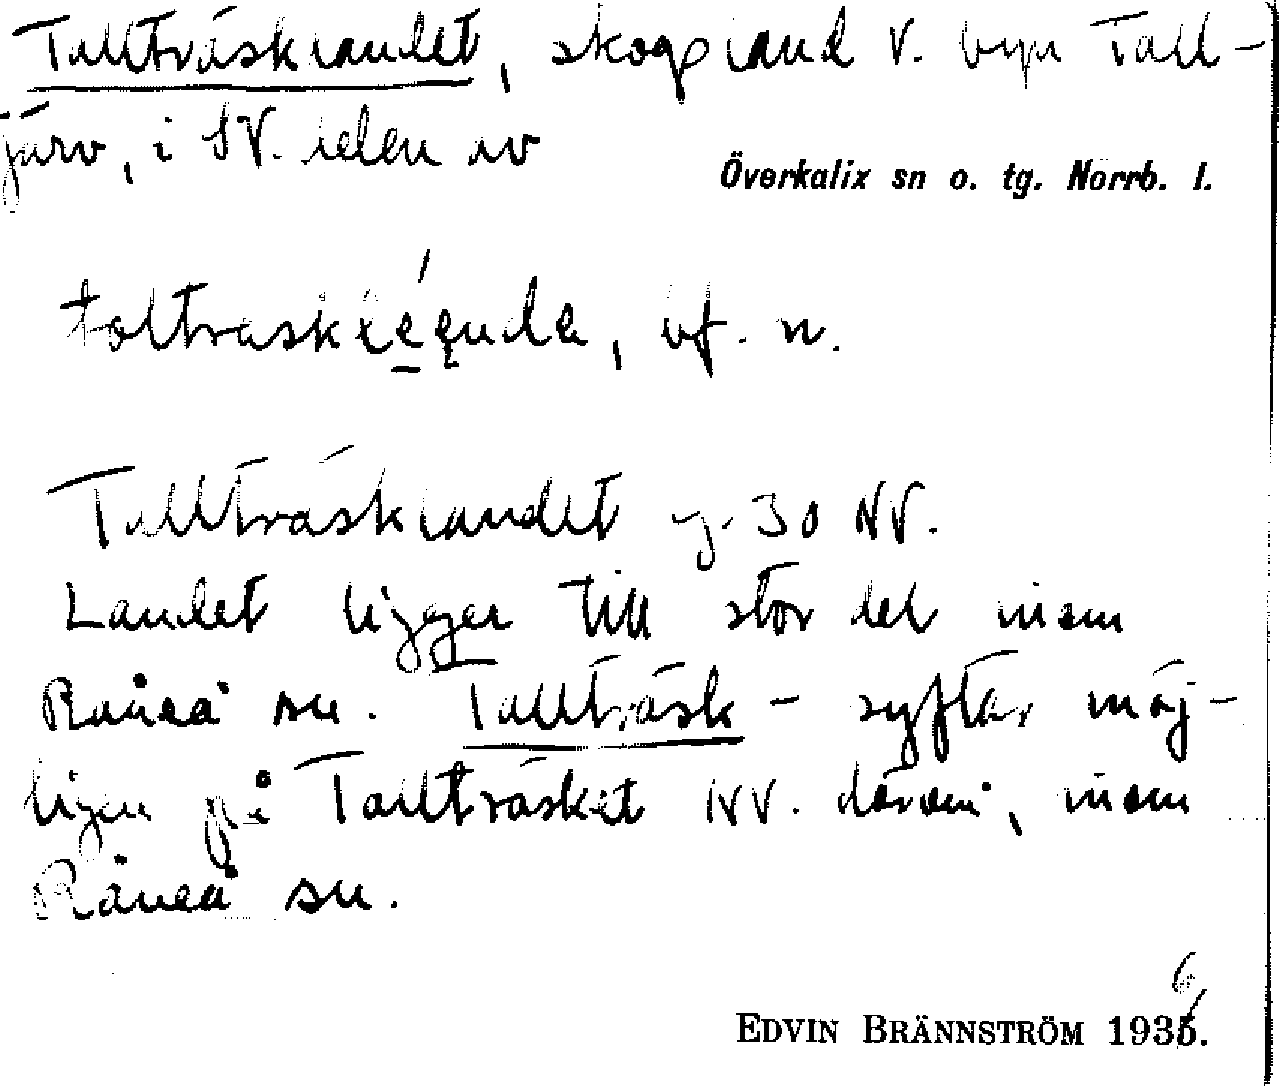 Tallträsklandet, skogsland V. byn Tall-
järv, i SV. delen av
Överkalix sn o. tg. Norrb. l.
bf. n.
Tallträsklandet g. 30 NV.
Landet ligger till stor del inom
Råneå sn. Tallträsk- syftar möj-
ligen på Tallträsket NV. därom, inom
Råneå sn.
6
EDVIN BRÄNNSTRÖM 1935.